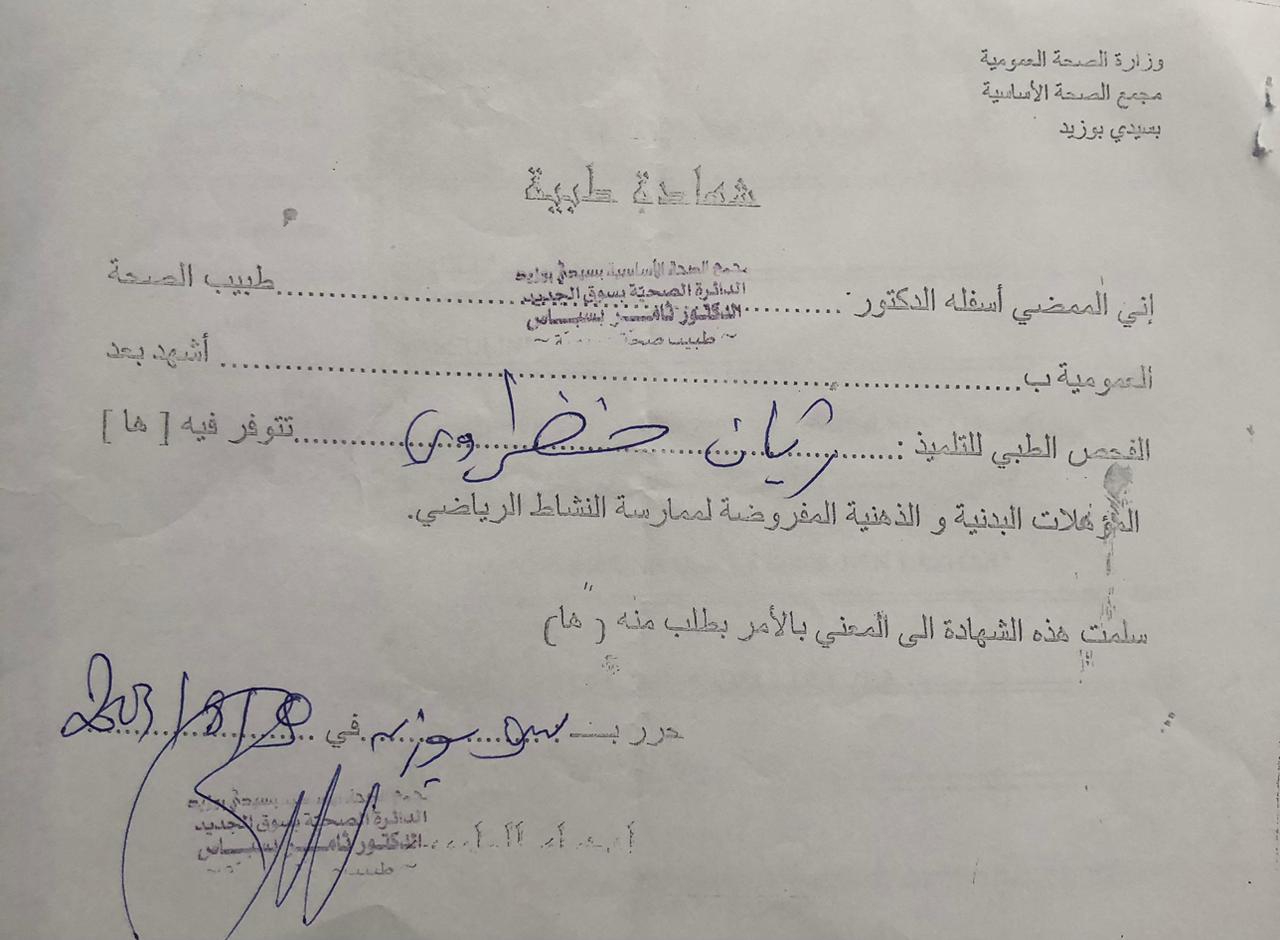 وزارة الصحة العمومية
مجمع الصحة الأساسية
بسيدي بوزيد
شهادة طبية
مجمع الصحة الأساسية بسيدي بوزيد
الدائرة الصحية بسوق الجديد
الدكتور ثامر بسباس
طبيب صحة
إني الممضي أسفله الدكتور : طبيب الصحة
العمومية ب أشهد بعد
الفحص الطبي للتلميذ : ريان خضراوي تتوفر فيه [ ها ]
المؤهلات البدنية و الذهنية المفروضة لممارسة النشاط الرياضي.
سلمت هذه الشهادة الى المعني بالأمر بطلب منه ( ها)
حرر بـ في
مجمع الصحة الأساسية بسيدي بوزيد
الدائرة الصحية بسوق الجديد
الدكتور ثامر بسباس
طبيب